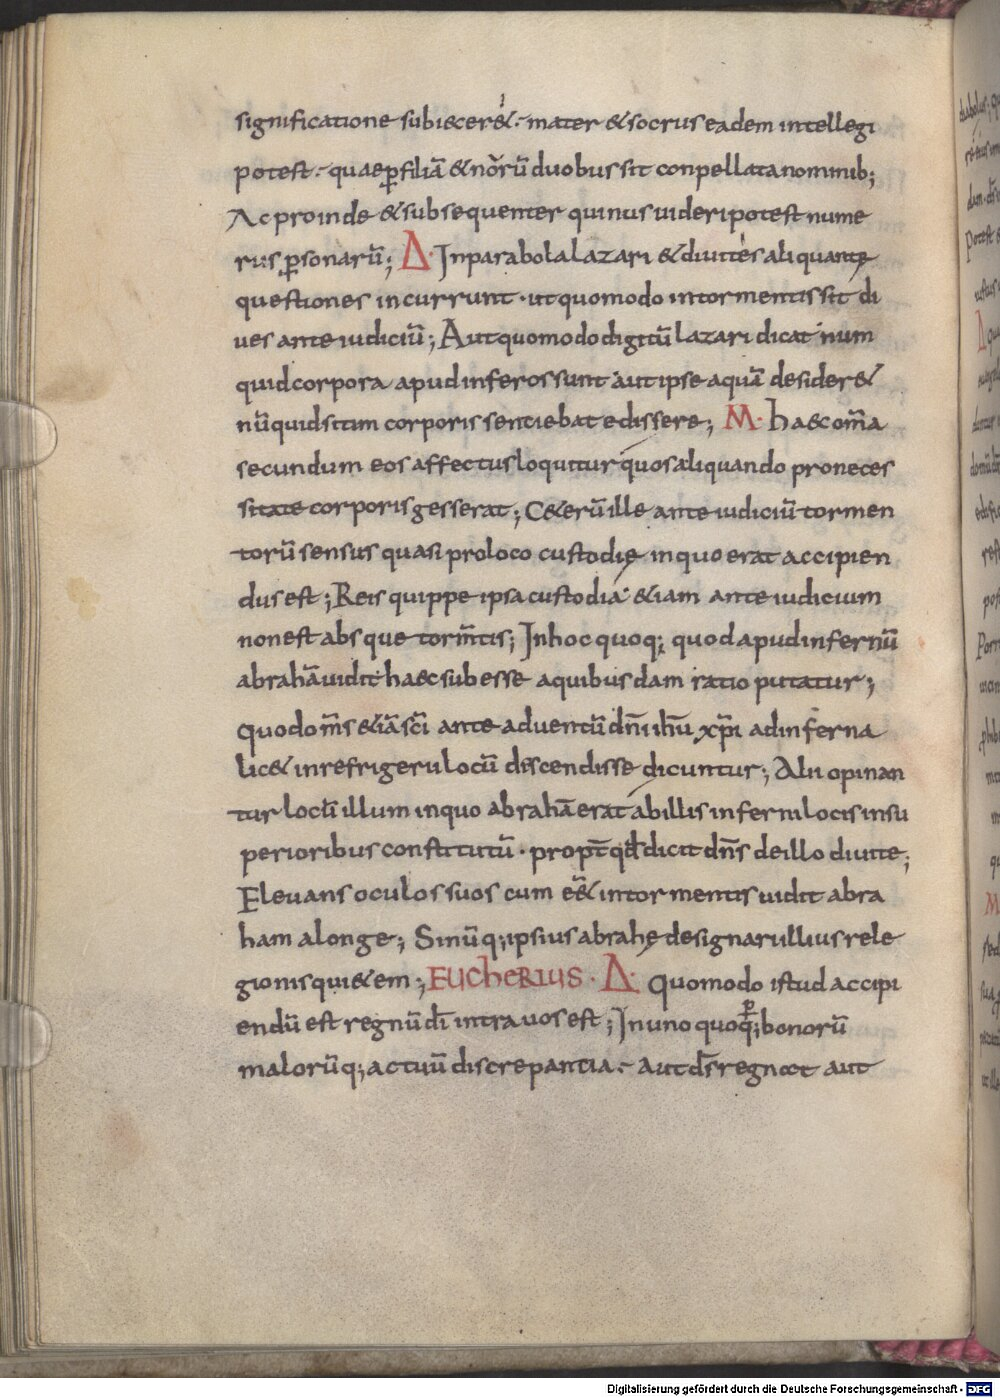 significatione subiacer&. mater & socrus eadem intellegi
potest. quae ꝑ filiā & norū duobus sit conpellata nominib;
Ac proinde & subsequenter quinus uideri potest nume
rus ꝑsonarū; Δ. In parabola lazari & diuitis aliquante
questiones incurrunt. ut quomodo in tormentis sit di
ues ante iudiciū; Aut quomodo digitū lazari dicat num
quid corpora apud inferos sunt aut ipse aquā desider&
nūquid sitim corporis sentiebat edissere; M. haec om̄a
secundum eos affectus loquitur quos aliquando pro neces
sitate corporis gesserat; C&erū ille ante iudiciū tormen
torū sensus quasi pro loco custodię in quo erat accipien
dus est; Reis quippe ipsa custodia &iam ante iudicium
non est absque torm̄tis; In hoc quoq; quod apud infernū
abrahā uidit haec subesse a quibusdam ratio putatur;
quod om̄s &iā sc̄i ante aduentū dn̄i ihū xp̄i ad inferna
lic& in refrigerii locū discendisse dicuntur; Alii opinan
tur locū illum in quo abrahā erat ab illis inferni locis in su
perioribus constitutū. propt̄ qđ dicit dn̄s de illo diuite;
Eleuans oculos suos cum ess& in tormentis uidit abra
ham a longe; Sinūq; ipsius abrahę designari illius rele
gionis qui&em; EUCHERIUS. Δ. Quomodo istud accipi
endū est regnū dī intra uos est; In uno quoq; ꝑ bonorū
malorūq; actuū discrepantia. aut dš regnat aut
Digitalisierung gefördert durch die Deutsche Forschungsgemeinschaft - DFG